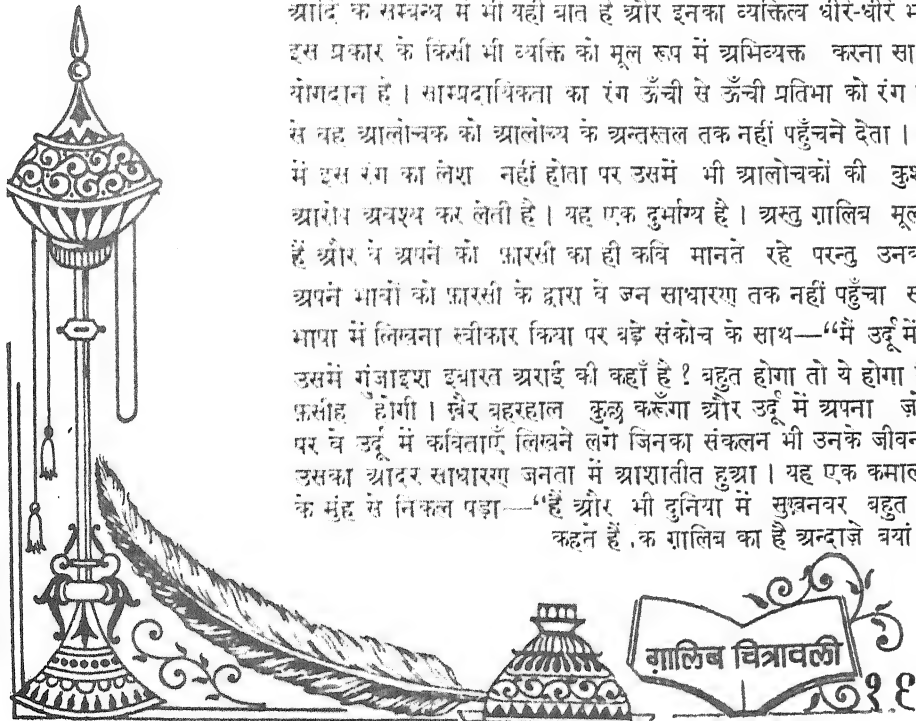 आदि के सम्बन्ध में भी यही बात है और इनका व्यक्तित्व धीरे-धीरे
इस प्रकार के किसी भी व्यक्ति को मूल रूप में अभिव्यक्त करना
योगदान है । साम्प्रदायिकता का रंग ऊँची से ऊँची प्रतिभा को रंग
से वह आलोचक को आलोच्य के अन्तस्तल तक नहीं पहुँचने देता ।
में इस रंग का लेश नहीं होता पर उसमें भी आलोचकों की
आरोप अवश्य कर लेती है । यह एक दुर्भाग्य है । अस्तु ग़ालिब
हैं और वे अपने को फ़ारसी का ही कवि मानते रहे परन्तु
अपने भावों को फ़ारसी के द्वारा वे जन साधारण तक नहीं पहुँचा
भाषा में लिखना स्वीकार किया पर बड़े संकोच के साथ—“मैं उर्दू में
उसमें गुंजाइश इबारत अराई की कहाँ है ? बहुत होगा तो ये होगा
फ़सीह होगी । ख़ैर बहरहाल कुछ करूँगा और उर्दू में अपना
पर वे उर्दू में कविताएँ लिखने लगे जिनका संकलन भी उनके
उसका आदर साधारण जनता में आशातीत हुआ । यह एक
के मुंह से निकल पड़ा—“हैं और भी दुनिया में सुख़नवर बहुत
कहते हैं .क ग़ालिब का है अन्दाज़े बयां
ग़ालिब चित्रावली
१६